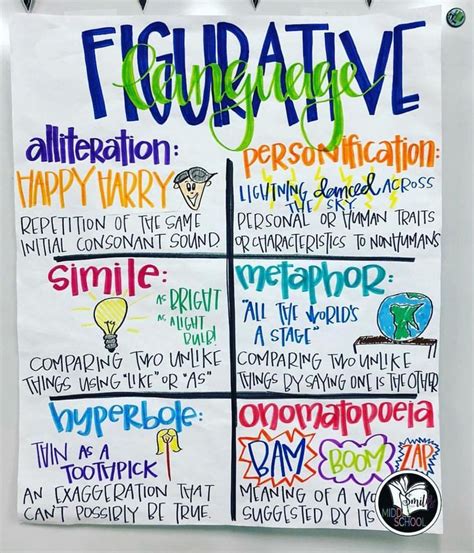 FIGURATIVE
language
alliteration:
HAPPY HARRY
REPETITION OF THE SAME
INITIAL CONSONANT SOUND.
personification:
LIGHTNING danced ACROSS
THE SKY.
PERSONAL OR HUMAN TRAITS
OR CHARACTERISTICS TO NONHUMANS
simile:
AS BRIGHT
AS A LIGHT
BULB!
COMPARING TWO UNLIKE
THINGS USING "LIKE" OR "AS"
metaphor:
"ALL THE WORLD'S
A STAGE"
COMPARING TWO UNLIKE
THINGS BY SAYING ONE IS THE OTHER
hyperbole:
THIN AS A
TOOTHPICK
AN EXAGGERATION THAT
CAN'T POSSIBLY BE TRUE.
onomatopoeia
BAM BOOM ZAP
MEANING OF A
SUGGESTED BY ITS
SCHOOL